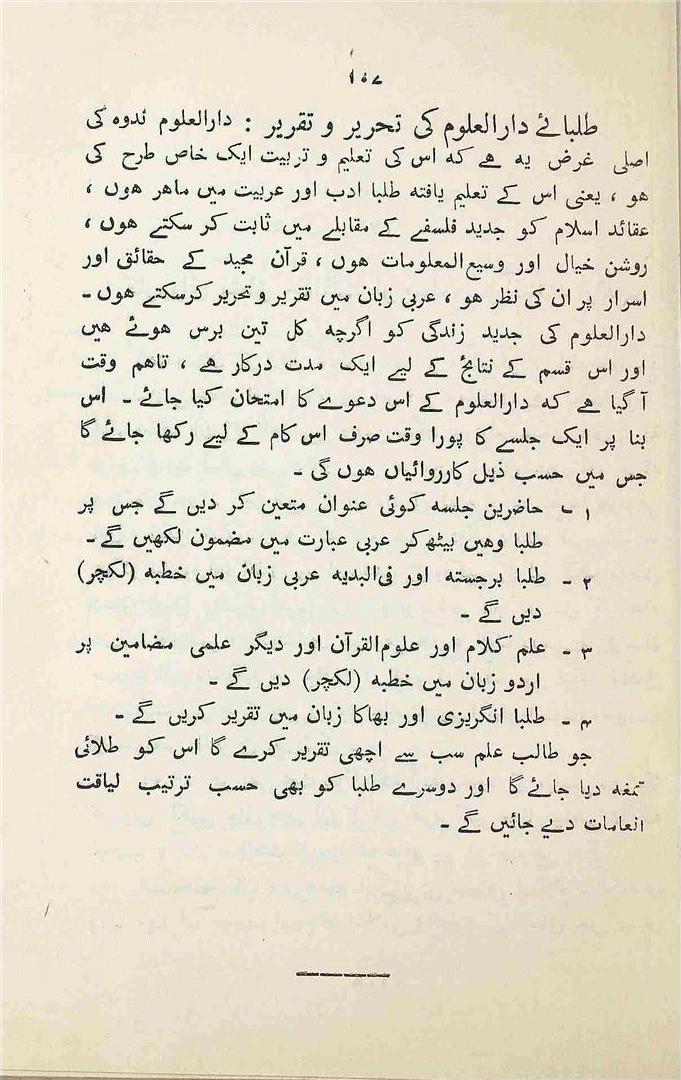 ۱۰۷
طلبائے دارالعلوم کی تحریر و تقریر : دارالعلوم ندوہ کی
اصلی غرض یہ ہے کہ اس کی تعلیم و تربیت ایک خاص طرح کی
ہو ، یعنی اس کے تعلیم یافتہ طلبا ادب اور عربیت میں ماہر ہوں ،
عقائد اسلام کو جدید فلسفے کے مقابلے میں ثابت کر سکتے ہوں ،
روشن خیال اور وسیع المعلومات ہوں ، قرآن مجید کے حقائق اور
اسرار پر ان کی نظر ہو ، عربی زبان میں تقریر و تحریر کرسکتے ہوں ۔
دارالعلوم کی جدید زندگی کو اگرچہ کل تین برس ہوئے ہیں
اور اس قسم کے نتائج کے لیے ایک مدت درکار ہے ، تاہم وقت
آ گیا ہے کہ دارالعلوم کے اس دعوے کا امتحان کیا جائے ۔ اس
بنا پر ایک جلسے کا پورا وقت صرف اس کام کے لیے رکھا جائے گا
جس میں حسب ذیل کارروائیاں ہوں گی ۔
۱ ۔ حاضرین جلسہ کوئی عنوان متعین کر دیں گے جس پر
طلبا وہیں بیٹھ کر عربی عبارت میں مضمون لکھیں گے ۔
۲ ۔ طلبا برجستہ اور فی‌البدیہ عربی زبان میں خطبہ (لکچر)
دیں گے ۔
۳ ۔ علم کلام اور علوم القرآن اور دیگر علمی مضامین پر
اردو زبان میں خطبہ (لکچر) دیں گے ۔
۴ ۔ طلبا انگریزی اور بھاکا زبان میں تقریر کریں گے ۔
جو طالب علم سب سے اچھی تقریر کرے گا اس کو طلائی
تمغہ دیا جائے گا اور دوسرے طلبا کو بھی حسب ترتیب لیاقت
انعامات دیے جائیں گے ۔